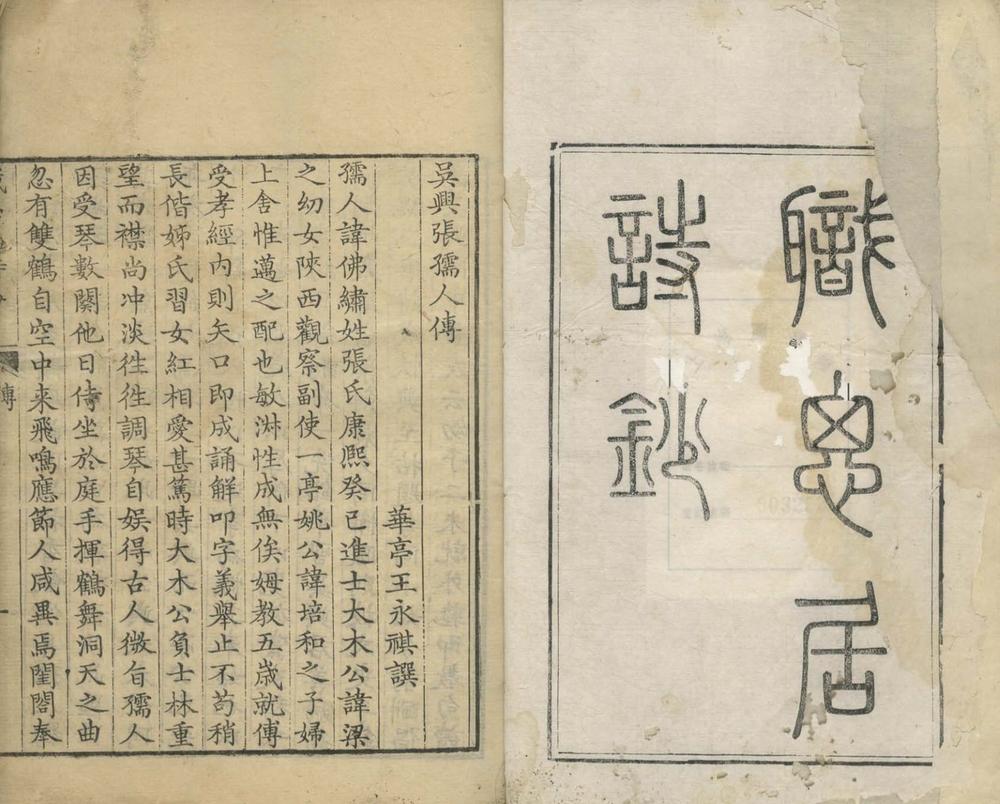 職思居
詩鈔
吳興張孺人傳
華亭王永祺譔
孺人諱佛繡姓張氏康熙癸巳進士大木公諱梁
之幼女陝西觀察副使一亭姚公諱培和之子婦
上舍惟邁之配也敏淋性成無俟姆教五歲就傅
受孝經內則矢口即成誦解叩字義舉止不苟稍
長偕姊氏習女紅相愛甚篤時大木公負士林重
望而襟尚冲淡徃徃調琴自娛得古人微旨孺人
因受琴數闋他日侍坐於庭手揮鶴舞洞天之曲
忽有雙鶴自空中来飛鳴應節人咸異焉閨閤奉
傳
一